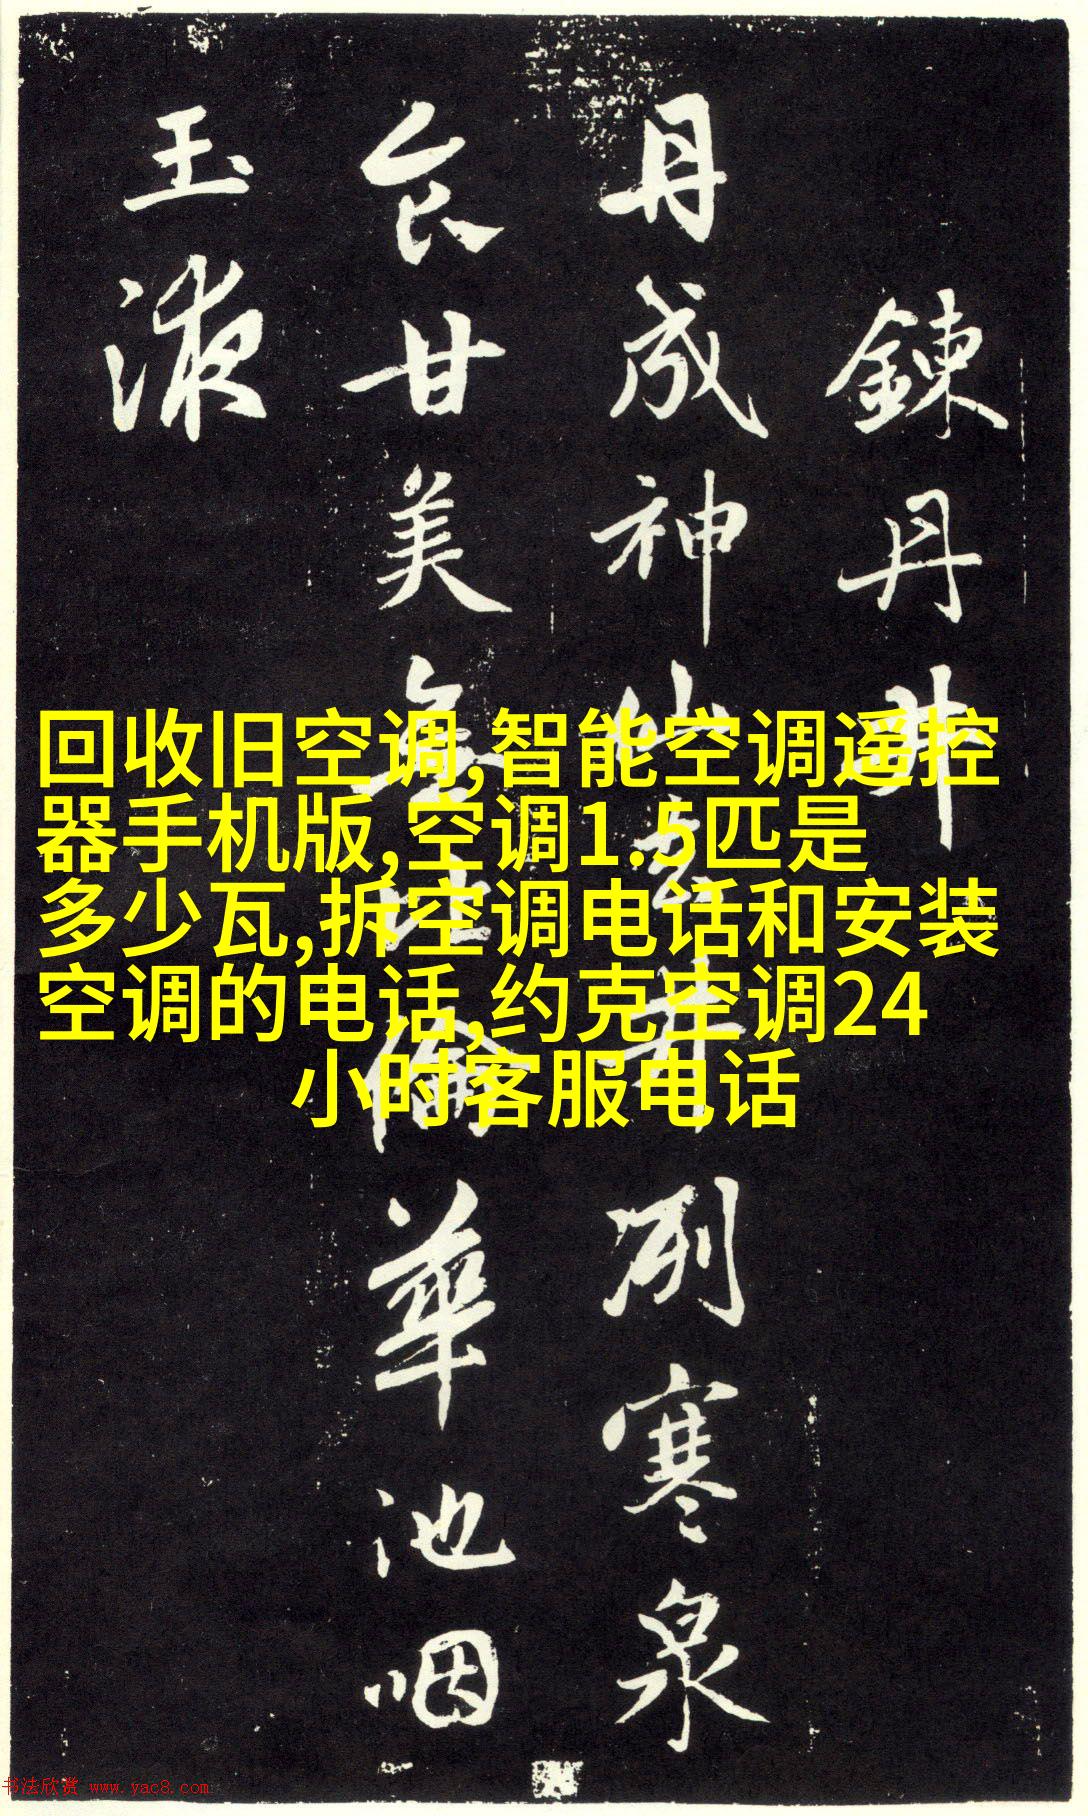 鍊丹井
丹成神仙去井冽寒泉
食甘美無比倫華池咽
玉液
回收旧空调,智能空调遥控
器手机版,空调1.5匹是
多少瓦,拆空调电话和安装
空调的电话,约克空调24
小时客服电话
书法欣赏 www.yac8.com